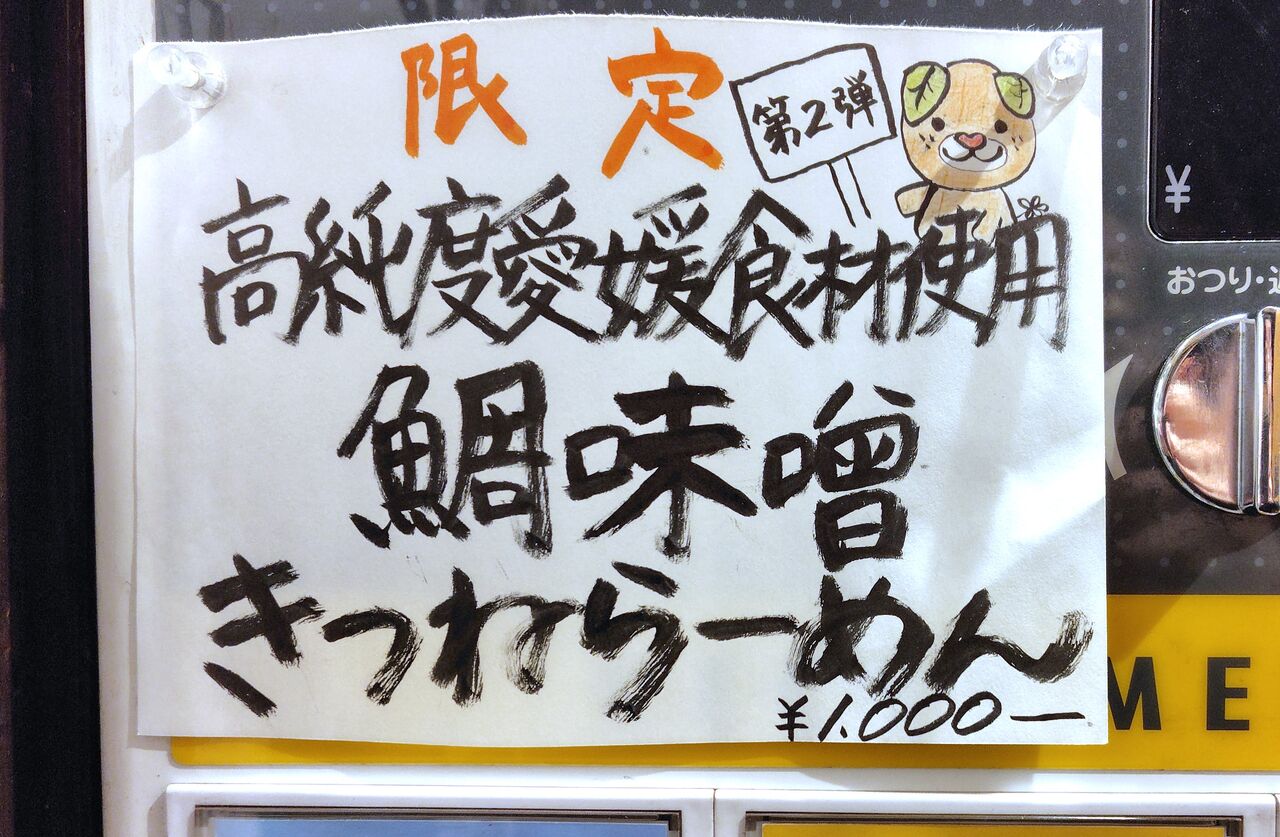 限定
第2弾
高純度愛媛食材使用
鯛味噌
きつねらーめん
¥1.000ー
¥
おつり・
ME